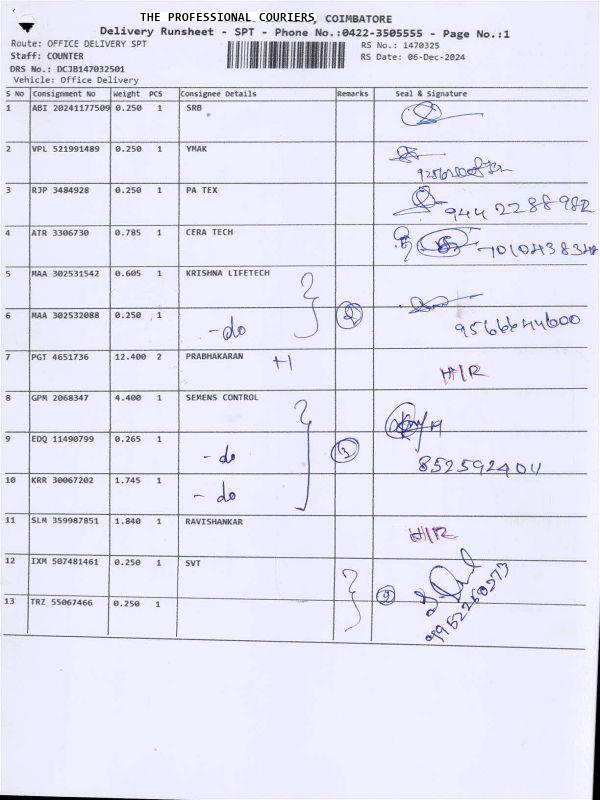 THE PROFESSIONAL COURIERS, COIMBATORE
Delivery Runsheet - SPT - Phone No.:0422-3505555 - Page No.:1
Route: OFFICE DELIVERY SPT
RS No.: 1470325
Staff: COUNTER
RS Date: 06-Dec-2024
DRS No.: DCJB147032501
Vehicle: Office Delivery
S No Consignment No Weight PCS Consignee Details Remarks Seal & Signature
1 ABI 20241177509 0.250 1 SRB
2 VPL 521991489 0.250 1 YMAK
3 RJP 3484928 0.250 1 PA TEX 944 2288982
4 ATR 3306730 0.785 1 CERA TECH
5 MAA 302531542 0.605 1 KRISHNA LIFETECH
6 MAA 302532088 0.250 1 -do 2 9566644600
7 PGT 4651736 12.400 2 PRABHAKARAN +1 H/R
8 GPM 2068347 4.400 1 SEMENS CONTROL
9 EDQ 11490799 0.265 1 -do 3 852592404
10 KRR 30067202 1.745 1 -do
11 SLM 359987851 1.840 1 RAVISHANKAR H/R
12 IXM 507481461 0.250 1 SVT 2
13 TRZ 55067466 0.250 1